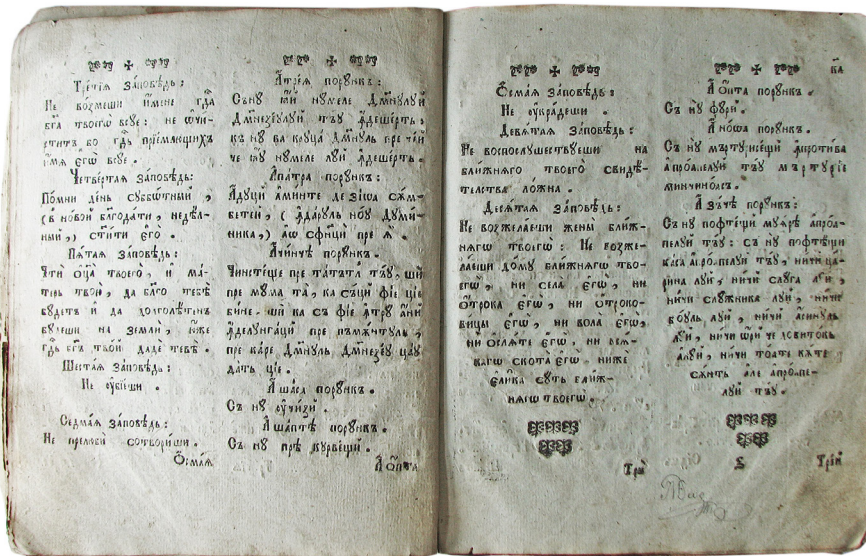 Третїѧ за́повѣдь:
Не во́змеши и҆́мене гдⷭ҇а
бг҃а твоегѡ̀ всуе: не ѡ҆чи-
ртитъ во гдⷭ҇ь прїемлющихъ
и҆́мѧ є҆гѡ̀ всуе.
Четве́ртаѧ за́повѣдь:
Помни де́нь суббѡ́тный,
(въ новой благода́ти, неде́л-
ный,) ст҃и́ти є҆го̀.
Пѧ́таѧ за́повѣдь:
Чти ѻ҆ц҃а̀ твоего, и҆ ма́-
терь твою̀, да бл҃го тебѣ̀
будетъ и҆ да долголѣтенъ
будеши на земли̑, ю҆́же
гдⷭ҇ь бг҃ъ тво́й даде́ тебѣ̀.
Шеста́ѧ за́повѣдь:
Не ᲂу҆бїе́ши.
Седма́ѧ за́повѣдь:
Не прелюбы̀ сотвори́ши.
Ѻ҆сма́ѧ
А҆трѐѧ порꙋнкъ:
Съ нꙋ ꙟ҆й нꙋмеле Дⷨ҇нꙋлꙋй
Дⷨ҇неꙁеꙋлꙋй тъꙋ ꙟ҆деше́ртъ,
къ нꙋ ва кꙋца Дⷨ҇нꙋль пре че́й
че ꙗ҆ꙋ нꙋмеле лꙋй ꙟ҆деше́ртъ.
А҆па́тра порꙋнкъ:
А҆дꙋци а҆ми́нте де ꙁіѡа сѫм-
бетей, (ꙟ҆да́рꙋль но́ꙋ Дꙋми́-
ника,) а҆ѡ сфинци пре ꙗ҆.
А҆чи́нчѣ порꙋнкъ.
Чинстѣще пре та́тъль тъ́ꙋ, ши
пре мꙋма та̀, ка съци̑ фіе ціе
бине. ши ка съ фіе ꙟ҆трꙋ а́ни
ꙟ҆делꙋнгаци̑ пре пъмѫнтꙋль,
пре каре Дⷨ҇нꙋль Дⷨ҇неꙁе́ꙋ ца́ꙋ
дать ціе.
А҆ша́са порꙋнкъ.
Съ нꙋ ᲂу҆чи́ꙁи.
А҆ша́пте порꙋнкъ.
Съ нꙋ пре́ кꙋрвѣщи.
А҆ѻ҆́пта
Ѻ҆сма́ѧ за́повѣдь:
Не ᲂу҆кра́деши.
Девѧ́таѧ за́повѣдь:
Не воспослушествуеши на
ближнѧгѡ твоего свидѣ́-
телства ло́жна.
Десѧ́таѧ за́повѣдь:
Не вожжеле́еши жены̀ бли́ж-
нѧгѡ твоегѡ̀: Не возже-
ла́еши до́му ближнѧгѡ тво-
егѡ̀, ни села̀ є҆гѡ̀, ни
ѻ҆́трока є҆гѡ̀, ни ѻ҆троко-
ви́цы є҆гѡ̀, ни вола̀ є҆гѡ̀,
ни ѻ҆слѧ́те є҆гѡ̀, ни всѧ́-
кагѡ скота̀ є҆гѡ̀, нижѐ
є҆ли́ка суть бли́ж-
нѧгѡ твоегѡ.
Трїй
к҃а
А҆ѻ҆́пта порꙋнкъ.
Съ нꙋ фꙋри̑.
А҆но́ѡа порꙋнкъ.
Съ нꙋ мъртꙋрисе́щи ꙟ҆протива
а҆про́апелꙋй тъꙋ мъртꙋрїе
минчино́асъ.
А҆ꙁѣ́чѣ порꙋнкъ:
Съ нꙋ пофте́щи мꙋꙗ́рѣ а҆про́а-
пелꙋй тъꙋ: съ нꙋ пофте́щи
каса а҆про́апелꙋй тъꙋ, ничи ца́-
рина лꙋй, ничи̑ слꙋга лꙋй,
ничи слꙋжника лꙋй, ничи
бо́ꙋль лꙋй, ничи а҆синꙋль
лꙋй, ничи ѡ҆ри че довиток
а҆лꙋй, ничи то́ате кѫте
сѫнть а҆ле а҆про́апе-
лꙋй тъꙋ.
Трїй